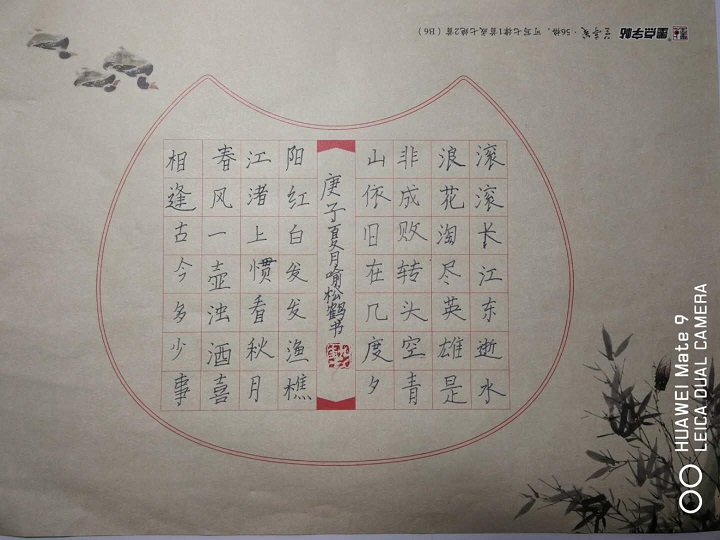 滚滚长江东逝水
浪花淘尽英雄是
非成败转头空青
山依旧在几度夕
庚子夏月喻松鹤书
阳红白发发渔樵
江渚上惯看秋月
春风一壶浊酒喜
相逢古今多少事
墨点字帖
56格，可写七律1首或七绝2首（B6）
HUAWEI Mate 9
LEICA DUAL CAMERA